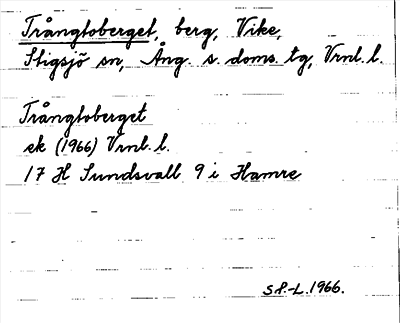 Trångtoberget, berg, Vike,
Stigsjö sn, Ång. s. doms. tg, Vrnl. l.
Trångtoberget
ek (1966) Vrnl. l.
17 H Sundsvall 9 i Hamre
S.P.-L. 1966.